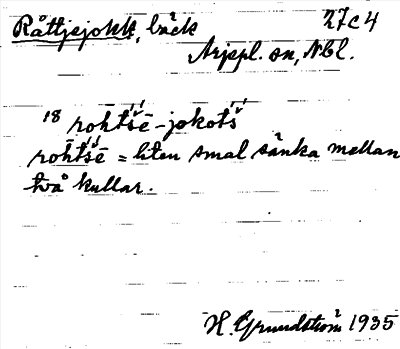 Råttjejokk, bäck 27c4
Arjepl. sn, Nbl.
18 rohtšē-jokotš
rohtšē = liten smal sänka mellan
två kullar.
H. Grundström 1935